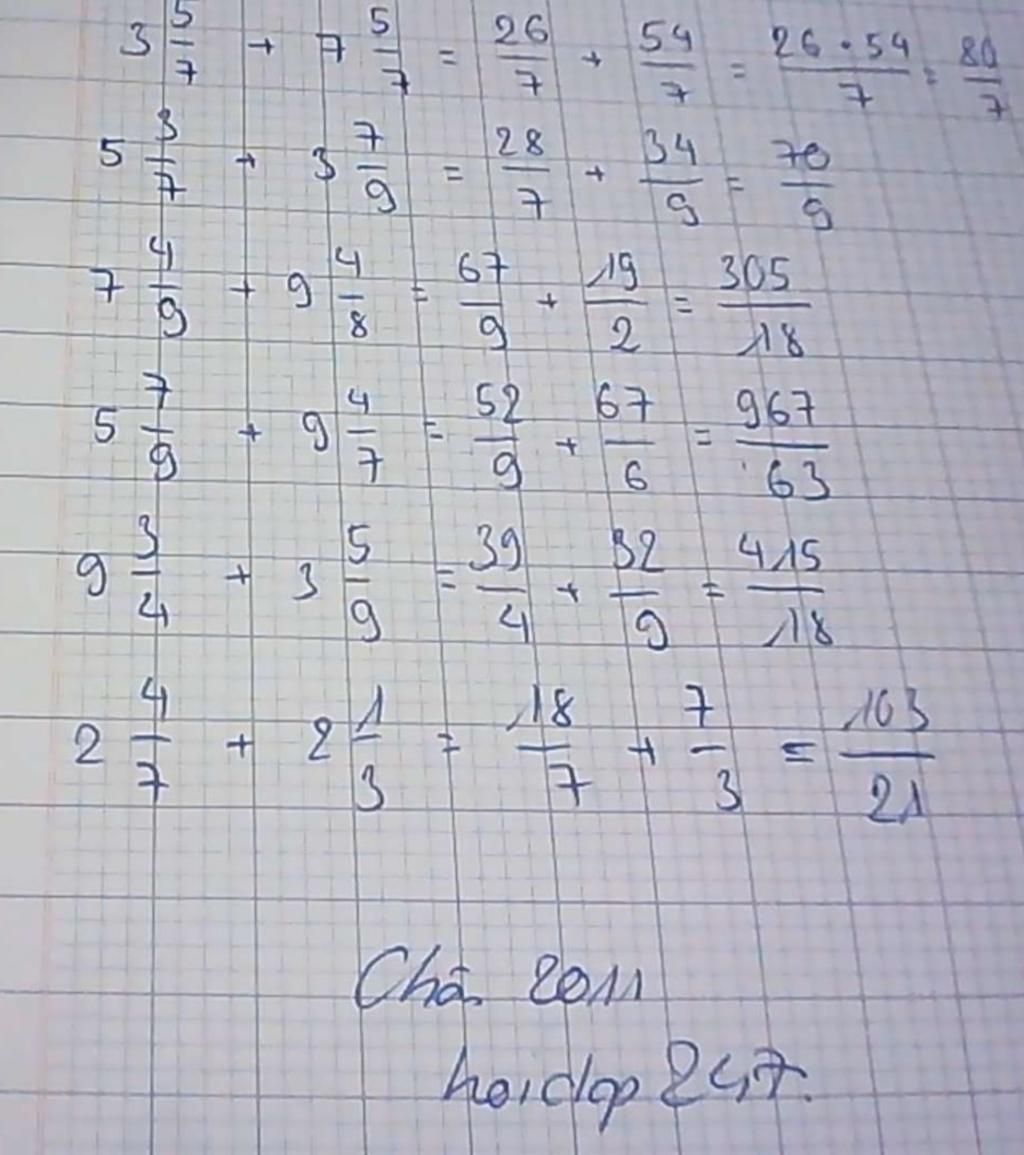 3 5/7 + 7 5/7 = 26/7 + 54/7 = 26 + 54/7 = 80/7
5 3/7 + 3 7/9 = 28/7 + 34/9 = 70/9
7 4/9 + 9 4/8 = 67/9 + 19/2 = 305/18
5 7/9 + 9 4/7 = 52/9 + 67/6 = 967/63
9 3/4 + 3 5/9 = 39/4 + 32/9 = 415/18
2 4/7 + 2 1/3 = 18/7 + 7/3 = 103/21
2011
hoidap 247.